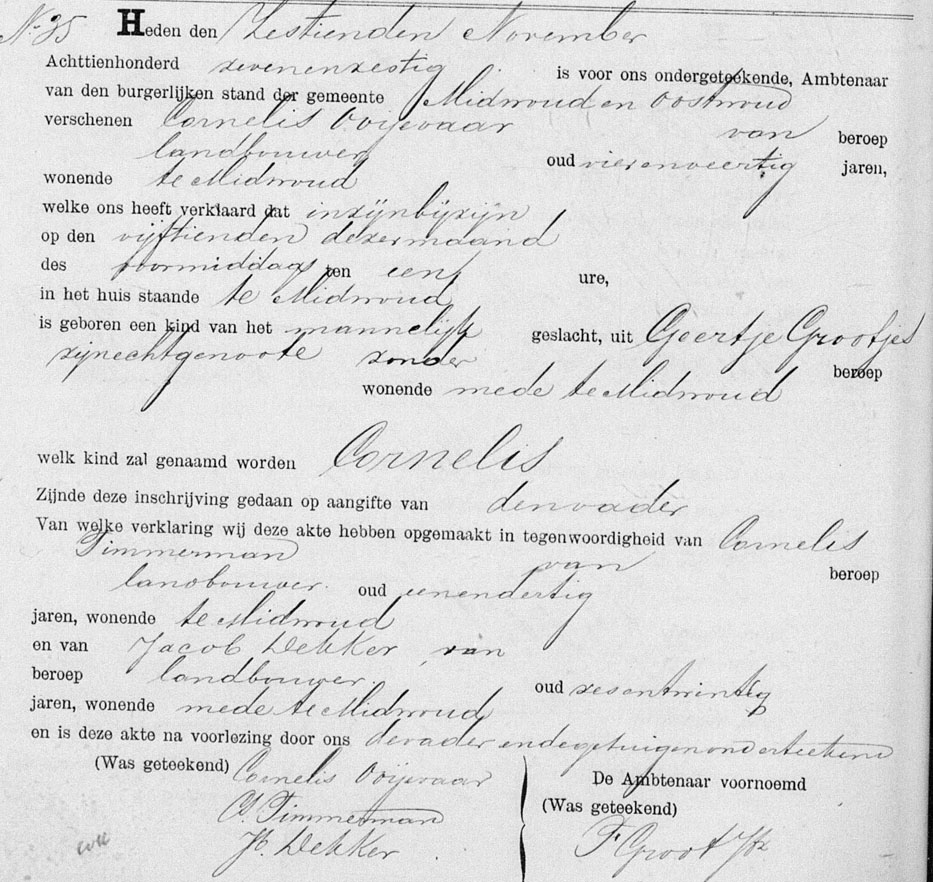 No. 35 Heden den Zestienden November
Achttienhonderd zevenenzestig is voor ons ondergeteekende, Ambtenaar
van den burgerlijken stand der gemeente Midwoud en Oostwoud
verschenen Cornelis Ooijevaar van beroep
landbouwer oud vierenveertig jaren,
wonende te Midwoud
welke ons heeft verklaard dat in zijn bijzijn
op den vijftienden dezer maand
des voormiddags ten een ure,
in het huis staande te Midwoud
is geboren een kind van het mannelijk geslacht, uit Geertje Grootjes
zijn echtgenoote zonder beroep
wonende mede te Midwoud
welk kind zal genaamd worden Cornelis
Zijnde deze inschrijving gedaan op aangifte van den vader
Van welke verklaring wij deze akte hebben opgemaakt in tegenwoordigheid van Cornelis
Timmerman van beroep
landbouwer. oud eenendertig
jaren, wonende te Midwoud
en van Jacob Dekker van
beroep landbouwer. oud zesentwintig
jaren, wonende mede te Midwoud
en is deze akte na voorlezing door ons de vader en de getuigen onderteekend
(Was geteekend) Cornelis Ooijevaar De Ambtenaar voornoemd
C. Timmerman (Was geteekend)
Jb. Dekker P Groot Jz